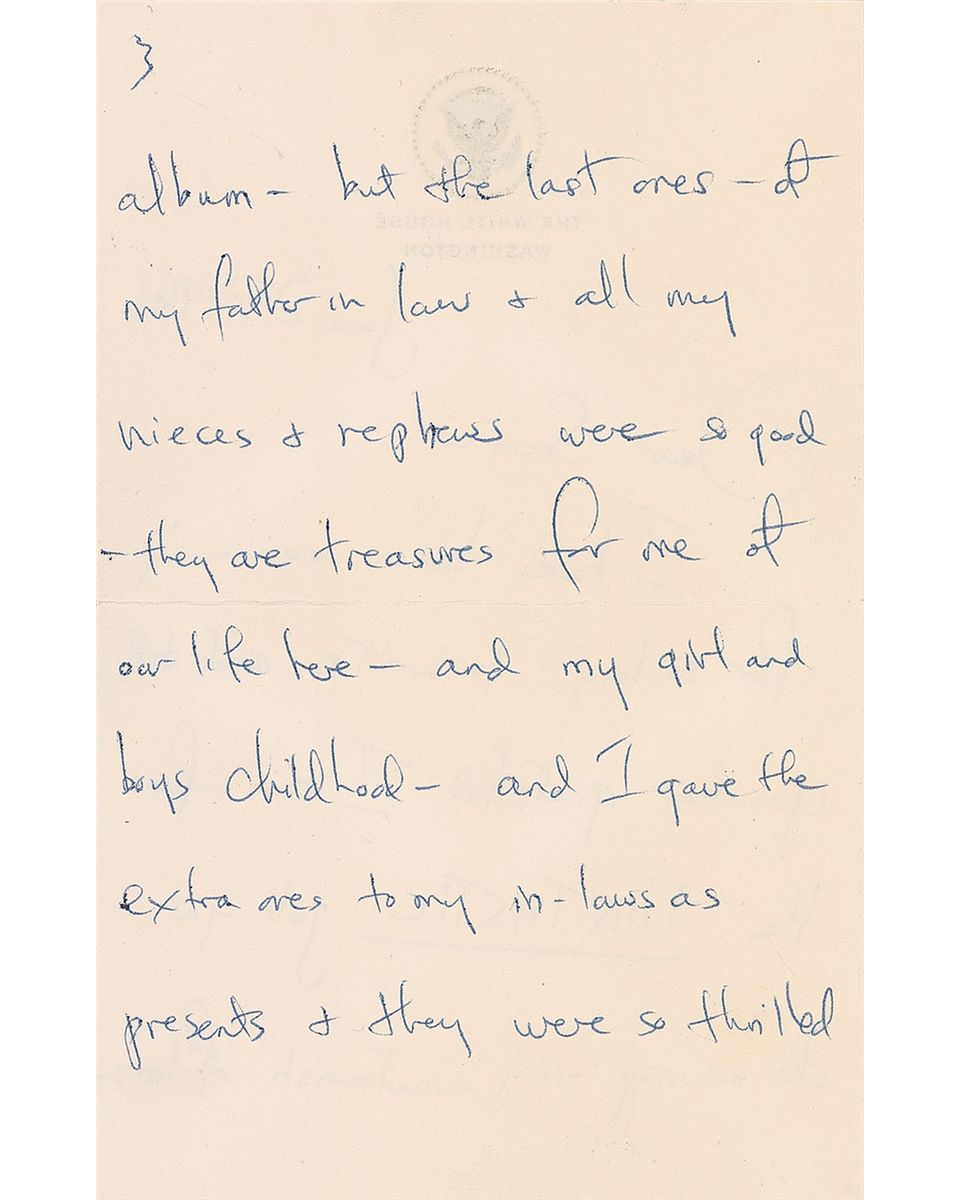 3
album – but the last ones – of
THE WHITE HOUSE
WASHINGTON
my father in law & all my
nieces & nephews were so good
– they are treasures for me of
our life here – and my girl and
boys childhood – and I gave the
extra ones to my in-laws as
presents & they were so thrilled